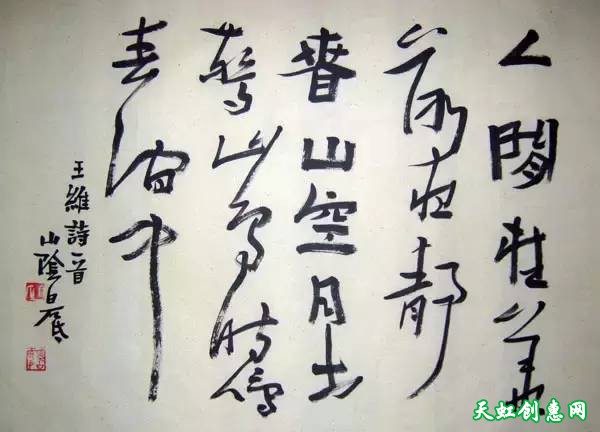 人閒桂花
落夜靜
春山空月出
驚山鳥時鳴
春澗中
王維詩一首
山陰白
天虹创惠网